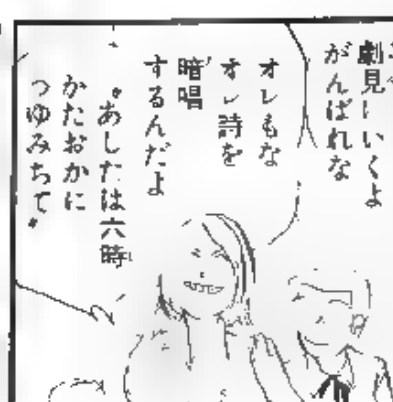 劇見にいくよ
がんばれな
オレもな
オレ詩を
暗唱
するんだよ
〝あしたは六時
かたおかに
つゆみちて〟